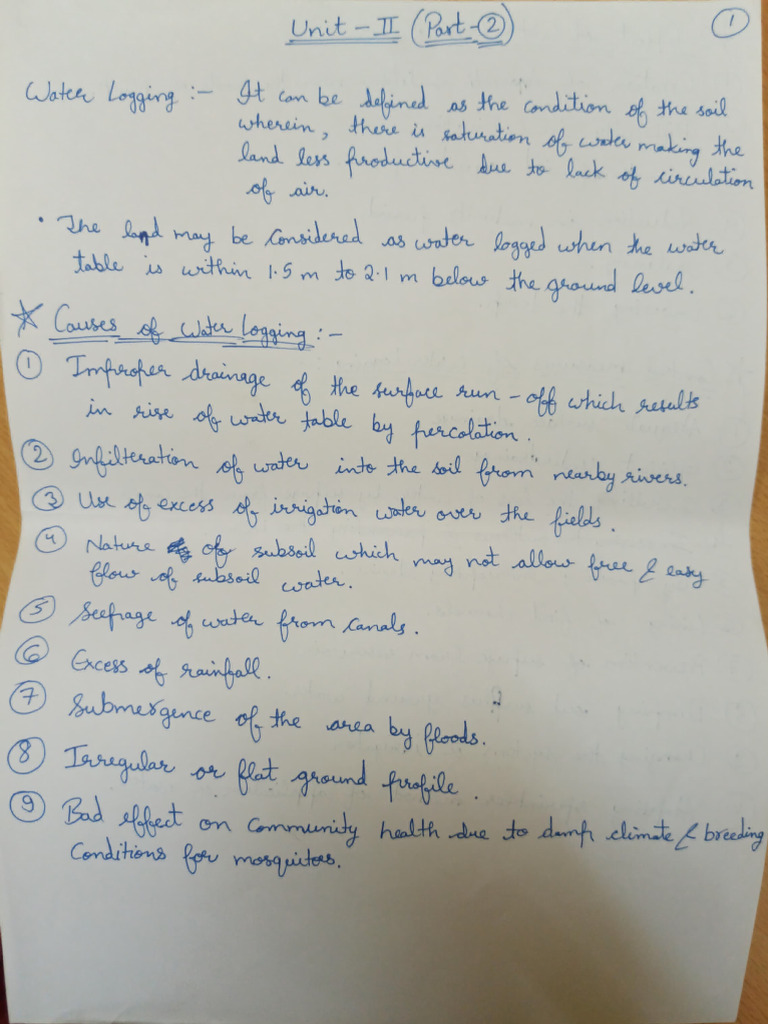 Unit - II (Part - 2)
1
Water Logging :- It can be defined as the condition of the soil
wherein, there is saturation of water making the
land less productive due to lack of circulation
of air.
• The land may be considered as water logged when the water
table is within 1.5 m to 2.1 m below the ground level.
☆ Causes of Water Logging :-
① Improper drainage of the surface run-off which results
in rise of water table by percolation.
② Infilteration of water into the soil from nearby rivers.
③ Use of excess of irrigation water over the fields.
④ Nature of subsoil which may not allow free & easy
flow of subsoil water.
⑤ Seepage of water from canals.
⑥ Excess of rainfall.
⑦ Submergence of the area by floods.
⑧ Irregular or flat ground profile.
⑨ Bad effect on community health due to damp climate & breeding
Conditions for mosquitoes.